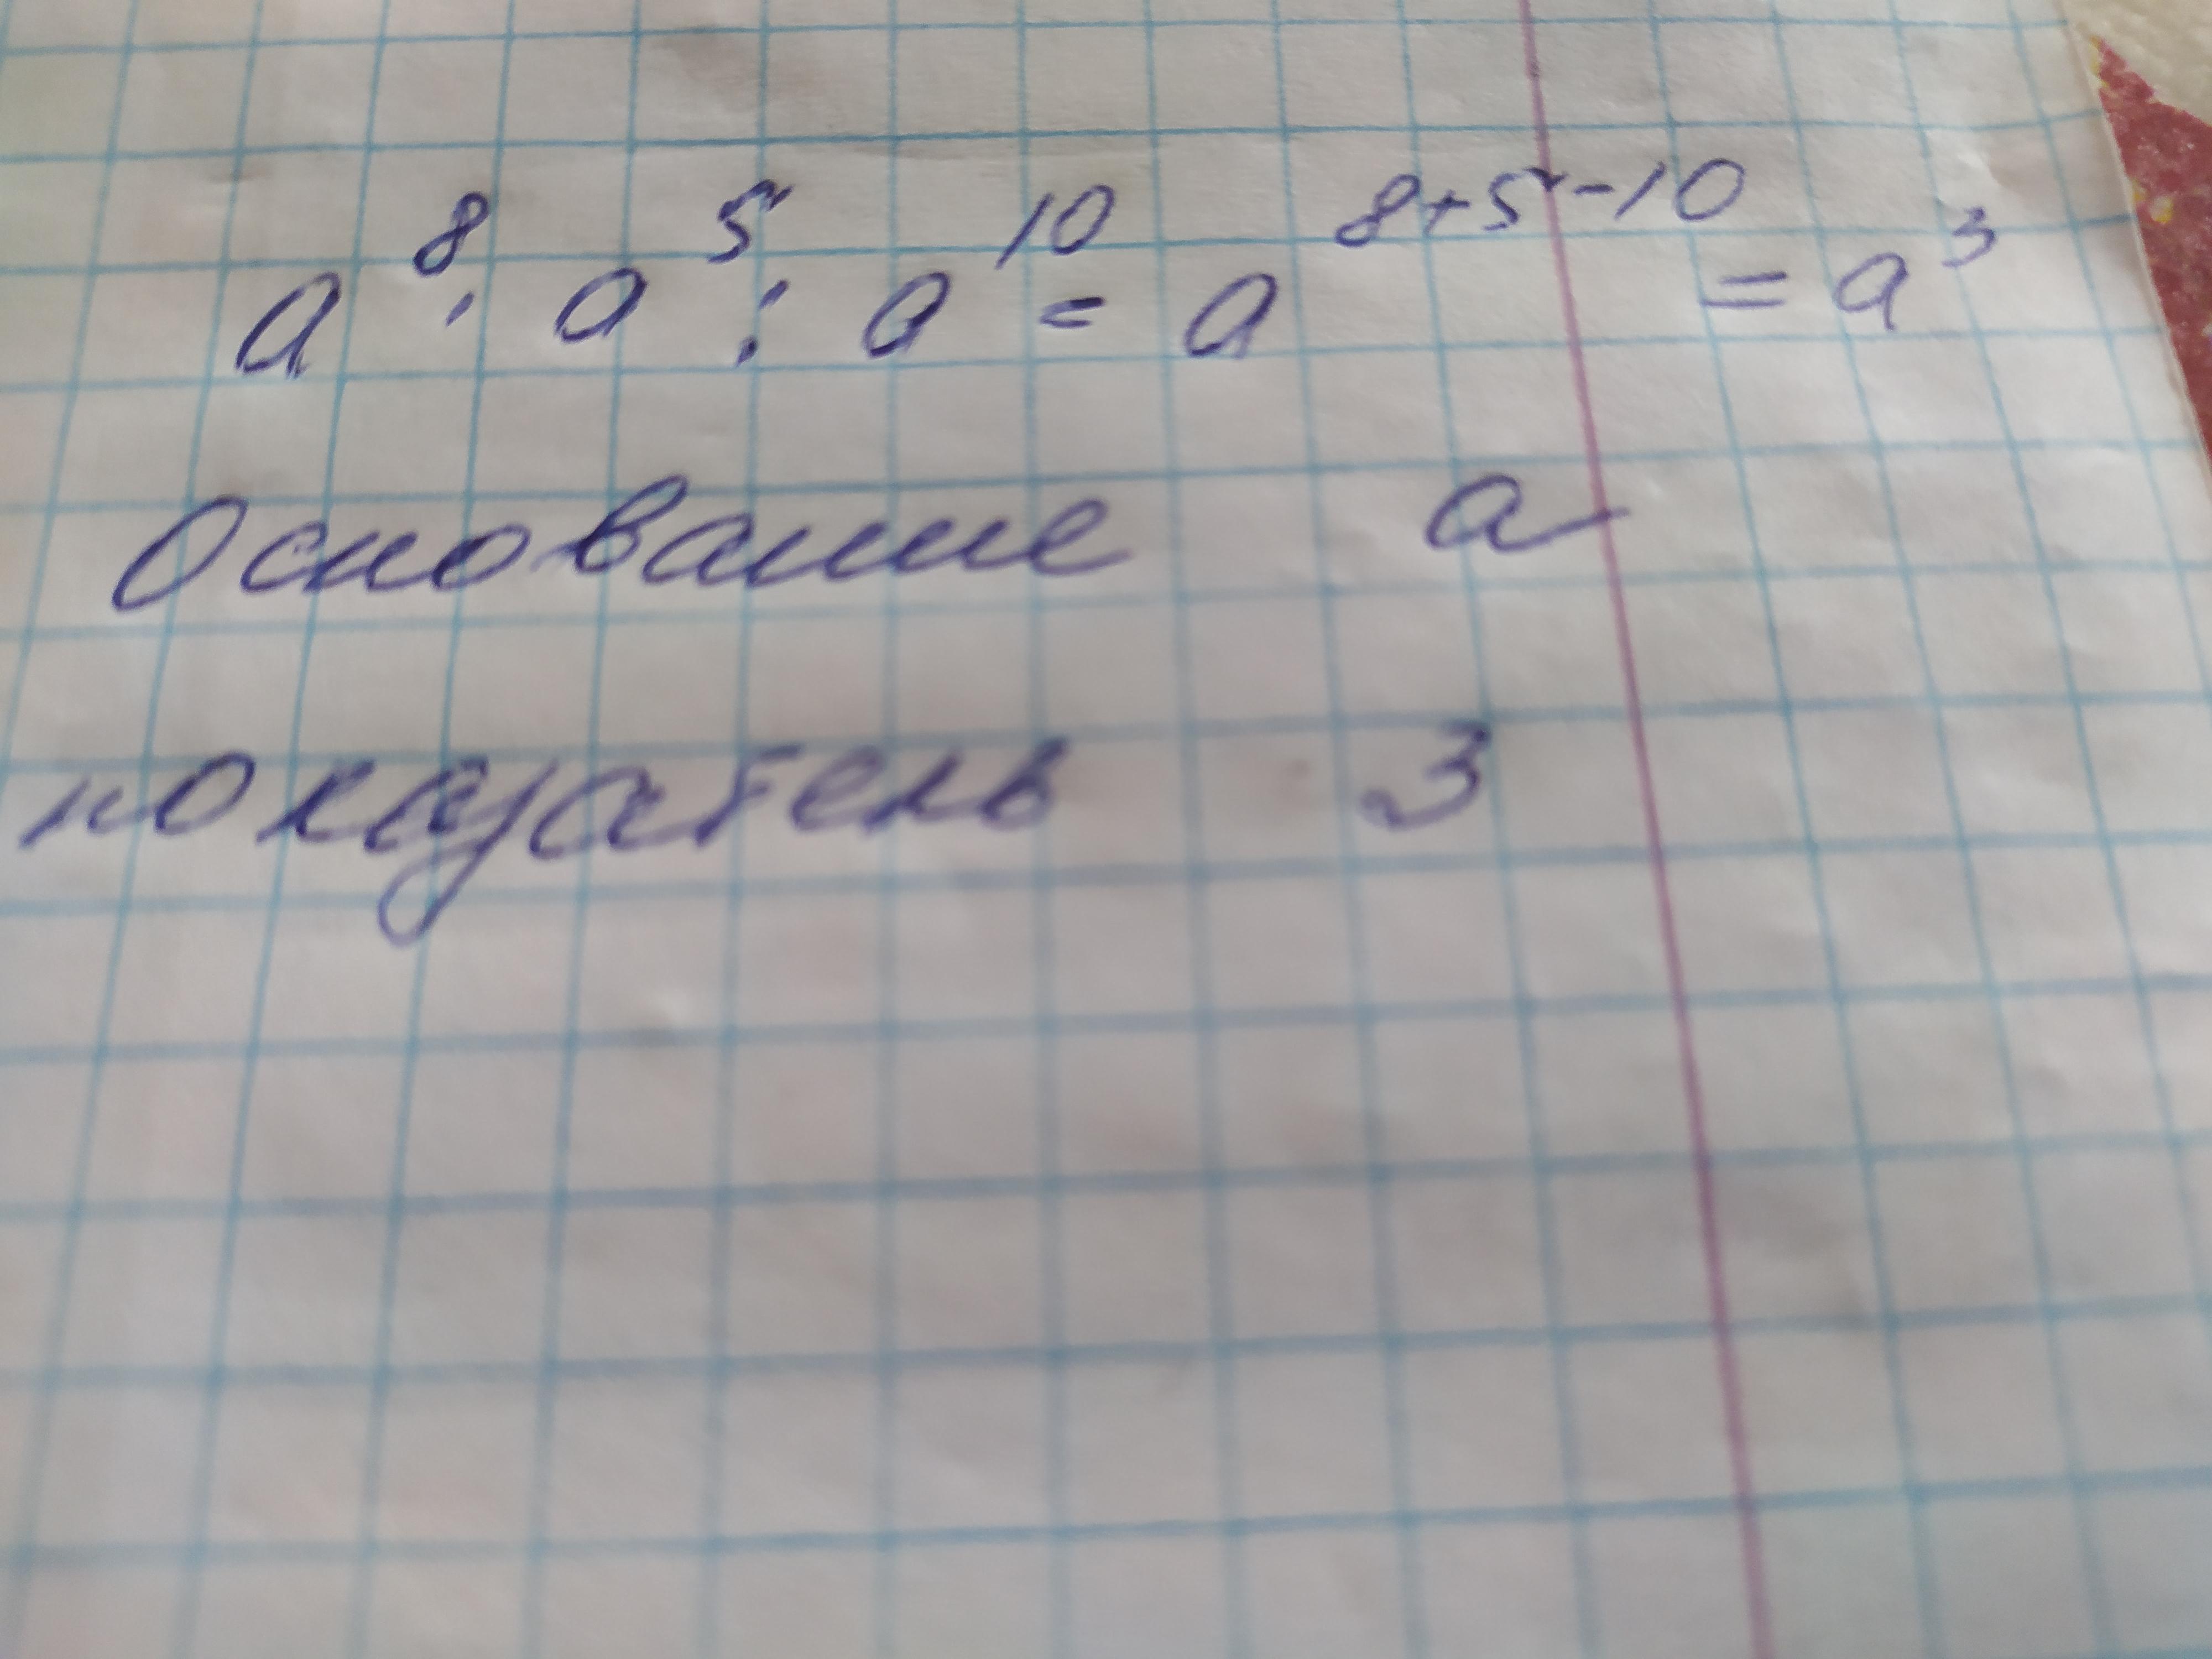 a⁸ · a⁵ : a¹⁰ = a⁸⁺⁵⁻¹⁰ = a³
Основание a
показатель 3